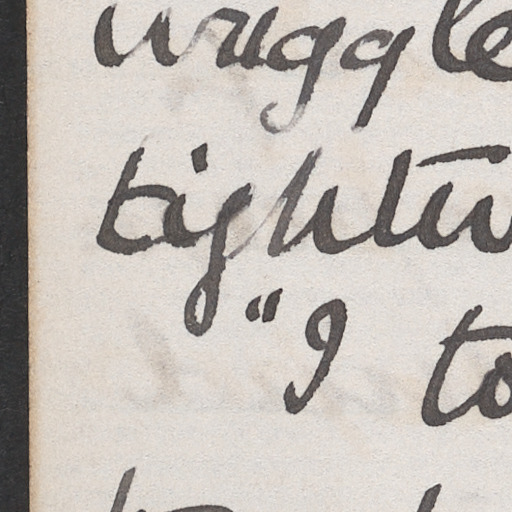 wriggle
tight
"I to